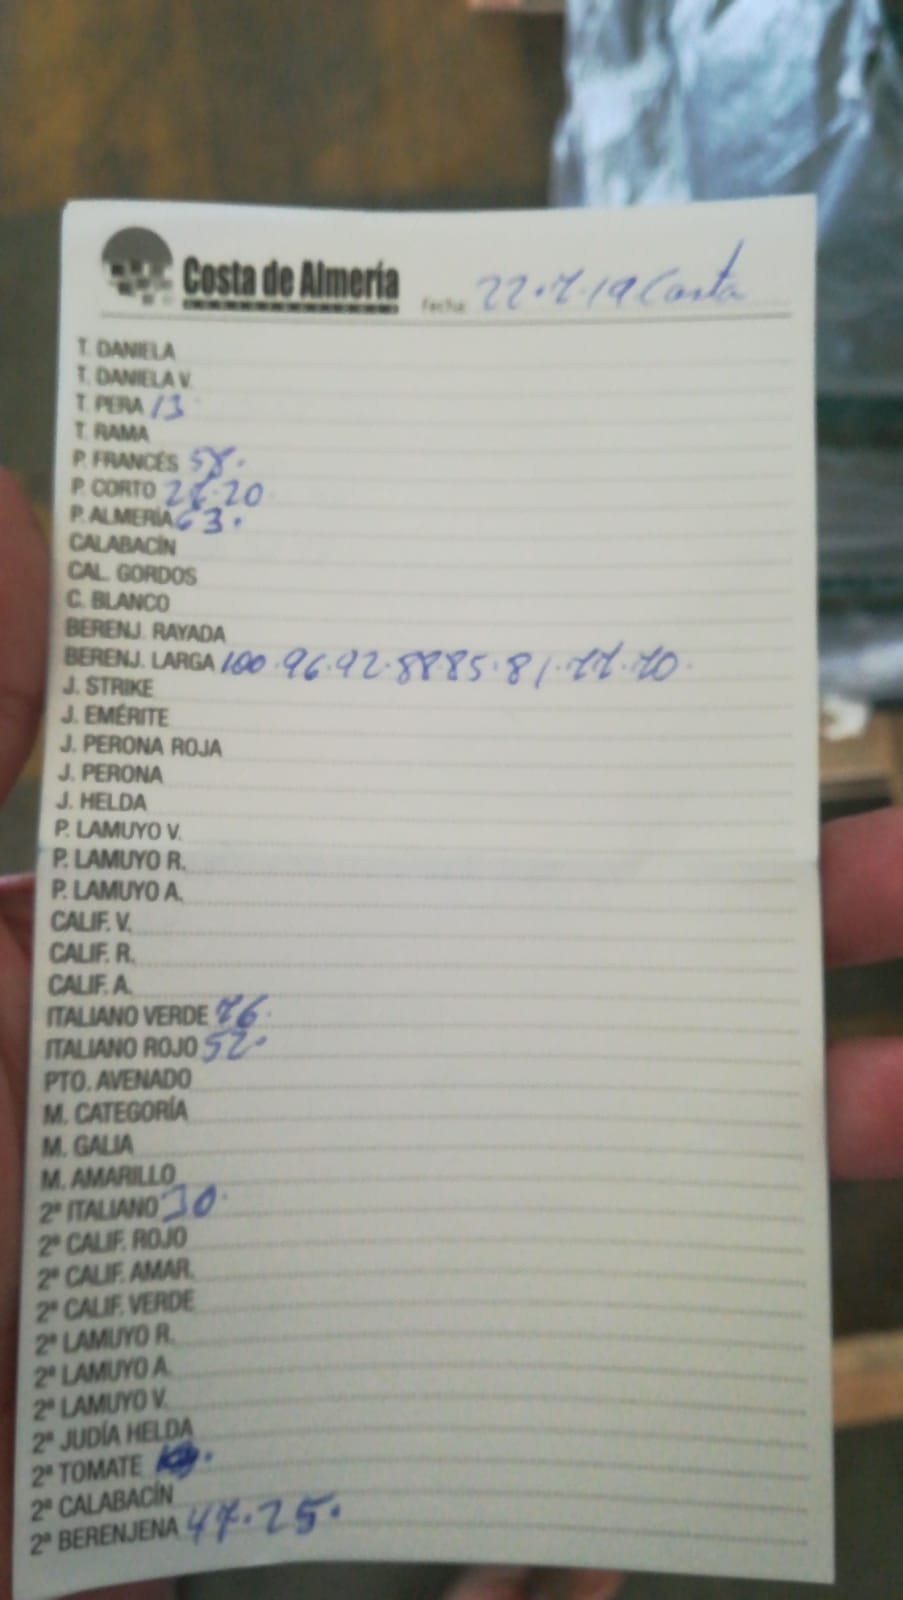 Costa de Almería
fecha 22.7.19 Costa
T. DANIELA
T. DANIELA V.
T. PERA 13
T. RAMA
P. FRANCÉS 58.
P. CORTO 27.20
P. ALMERÍA 63.
CALABACÍN
CAL. GORDOS
C. BLANCO
BERENJ. RAYADA
BERENJ. LARGA 100.96.92.88 85.81.77.70.
J. STRIKE
J. EMÉRITE
J. PERONA ROJA
J. PERONA
J. HELDA
P. LAMUYO V.
P. LAMUYO R.
P. LAMUYO A.
CALIF. V.
CALIF. R.
CALIF. A.
ITALIANO VERDE 76.
ITALIANO ROJO 52.
PTO. AVENADO
M. CATEGORÍA
M. GALIA
M. AMARILLO
2ª ITALIANO 30.
2ª CALIF. ROJO
2ª CALIF. AMAR.
2ª CALIF. VERDE
2ª LAMUYO R.
2ª LAMUYO A.
2ª LAMUYO V.
2ª JUDÍA HELDA
2ª TOMATE
2ª CALABACÍN
2ª BERENJENA 47.25.